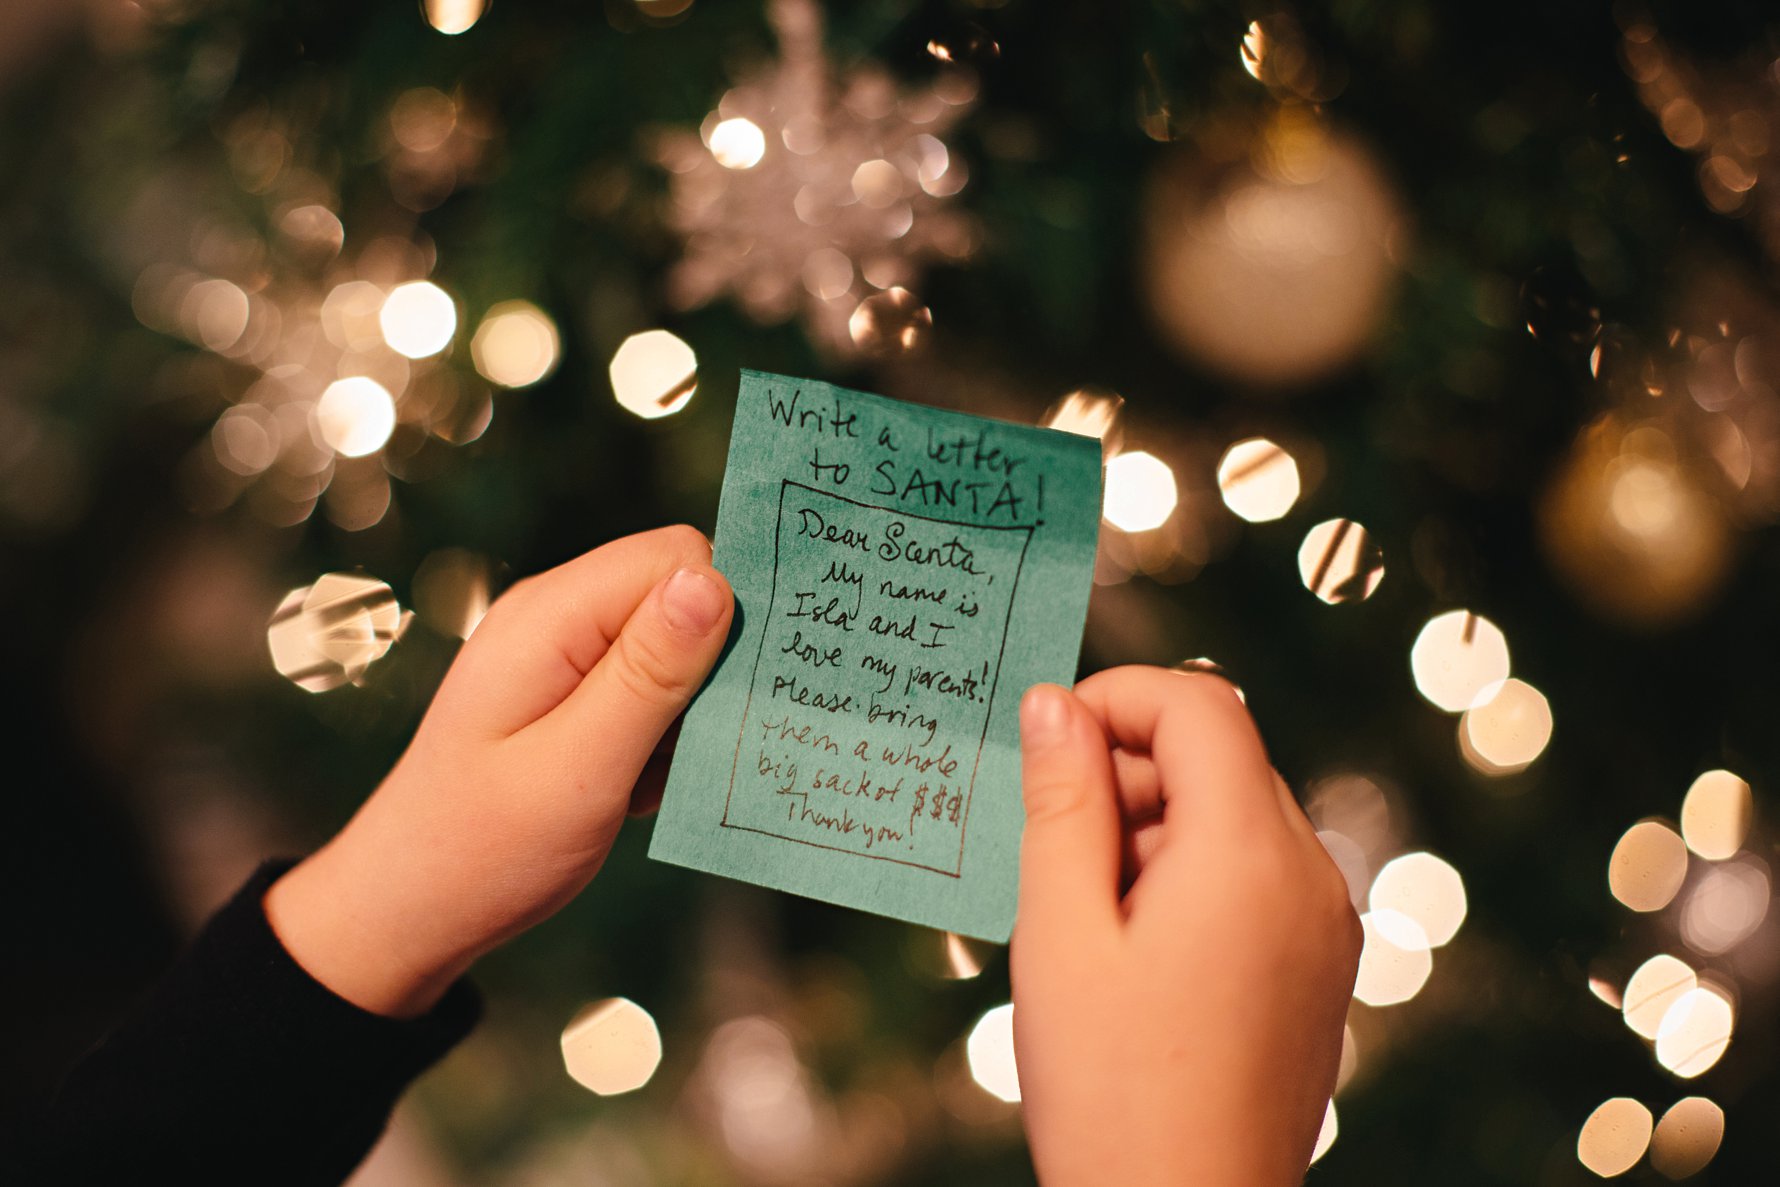 Write a letter
to SANTA!
Dear Santa,
My name is
Isla and I
love my parents!
Please bring
them a whole
big sack of $$$
Thank you!